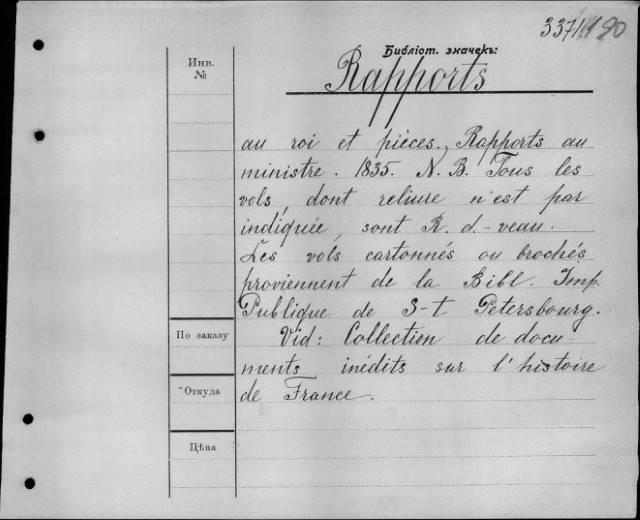 Библіот. значекъ:
Инв.
№
Rapports
au roi et pièces. Rapports au
ministre. 1835. N. B. Tous les
vols, dont reliure n'est par
indiquée, sont R. d.-veau.
Les vols cartonnés ou brochés
proviennent de la Bibl. Imp.
Publique de S-t Petersbourg.
По заказу
Vid: Collection de docu-
ments inédits sur l'histoire
Откуда
de France.
Цѣна